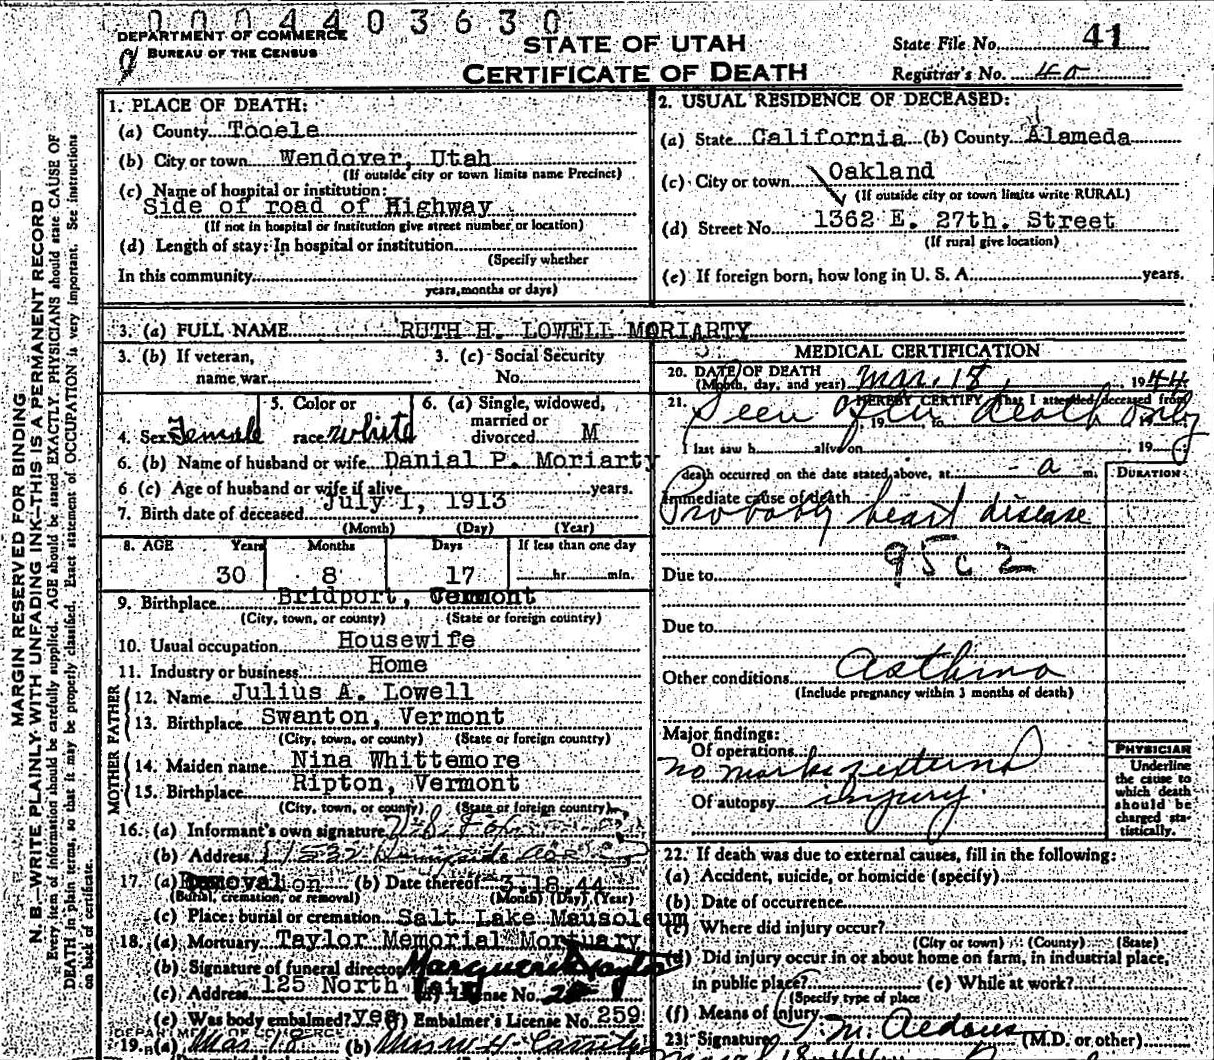 0004403630
DEPARTMENT OF COMMERCE
BUREAU OF THE CENSUS
STATE OF UTAH
CERTIFICATE OF DEATH
State File No. 41
Registrar's No. 40
MARGIN RESERVED FOR BINDING
N. B.—WRITE PLAINLY WITH UNFADING INK—THIS IS A PERMANENT RECORD
Every item of information should be carefully supplied. AGE should be stated EXACTLY. PHYSICIANS should state CAUSE OF
DEATH in plain terms, so that it may be properly classified. Exact statement of OCCUPATION is very important. See instructions
on back of certificate.
1. PLACE OF DEATH:
(a) County Tooele
(b) City or town Wendover, Utah
(If outside city or town limits name Precinct)
(c) Name of hospital or institution:
Side of road of Highway
(If not in hospital or institution give street number or location)
(d) Length of stay: In hospital or institution
(Specify whether
In this community
years, months or days)
2. USUAL RESIDENCE OF DECEASED:
(a) State California (b) County Alameda
(c) City or town Oakland
(If outside city or town limits write RURAL)
(d) Street No. 1362 E. 27th. Street
(If rural give location)
(e) If foreign born, how long in U. S. A. years.
3. (a) FULL NAME RUTH H. LOWELL MORIARTY
3. (b) If veteran, name war
3. (c) Social Security No.
4. Sex Female
5. Color or race white
6. (a) Single, widowed, married or divorced M
6. (b) Name of husband or wife Danial P. Moriarty
6. (c) Age of husband or wife if alive years.
7. Birth date of deceased July 1, 1913
(Month) (Day) (Year)
8. AGE Years Months Days If less than one day
30 8 17 hr. min.
9. Birthplace Bridport, Vermont
(City, town, or county) (State or foreign country)
10. Usual occupation Housewife
11. Industry or business Home
FATHER
12. Name Julius A. Lowell
13. Birthplace Swanton, Vermont
(City, town, or county) (State or foreign country)
MOTHER
14. Maiden name Nina Whittemore
15. Birthplace Ripton, Vermont
(City, town, or county) (State or foreign country)
16. (a) Informant's own signature
(b) Address
17. (a) Removal (b) Date thereof 3.18.44
(Burial, cremation, or removal) (Month) (Day) (Year)
(c) Place: burial or cremation Salt Lake Mausoleum
18. (a) Mortuary Taylor Memorial Mortuary
(b) Signature of funeral director Marguerite Taylor
(c) Address 125 North (d) License No.
(e) Was body embalmed? yes (f) Embalmer's License No. 259
DEPARTMENT OF COMMERCE
19. (a) Mar 18 (b)
MEDICAL CERTIFICATION
20. DATE OF DEATH
(Month, day, and year) Mar. 18 1944
21. I HEREBY CERTIFY, That I attended deceased from
Seen after death only
, 19 to 19
I last saw h alive on 19
death occurred on the date stated above, at a m.
DURATION
Immediate cause of death
Probably heart disease
95c2
Due to
Due to
Other conditions Asthma
(Include pregnancy within 3 months of death)
Major findings:
Of operations
no marks external
Of autopsy injury.
PHYSICIAN
Underline
the cause to
which death
should be
charged sta-
tistically.
22. If death was due to external causes, fill in the following:
(a) Accident, suicide, or homicide (specify)
(b) Date of occurrence
(c) Where did injury occur?
(City or town) (County) (State)
(d) Did injury occur in or about home on farm, in industrial place,
in public place? (e) While at work?
(Specify type of place
(f) Means of injury
23. Signature M. Aldous (M.D. or other)